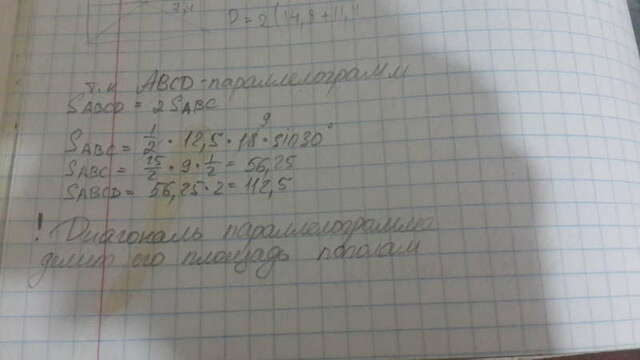 7,4
P = 2(14,8 + 11,4
т.к ABCD - параллелограмм
SABCD = 2 SABC
9
SABC = 1/2 · 12,5 · 18 · sin 30°
SABC = 25/2 · 9 · 1/2 = 56,25
SABCD = 56,25 · 2 = 112,5
! Диагональ параллелограмма
делит его площадь пополам